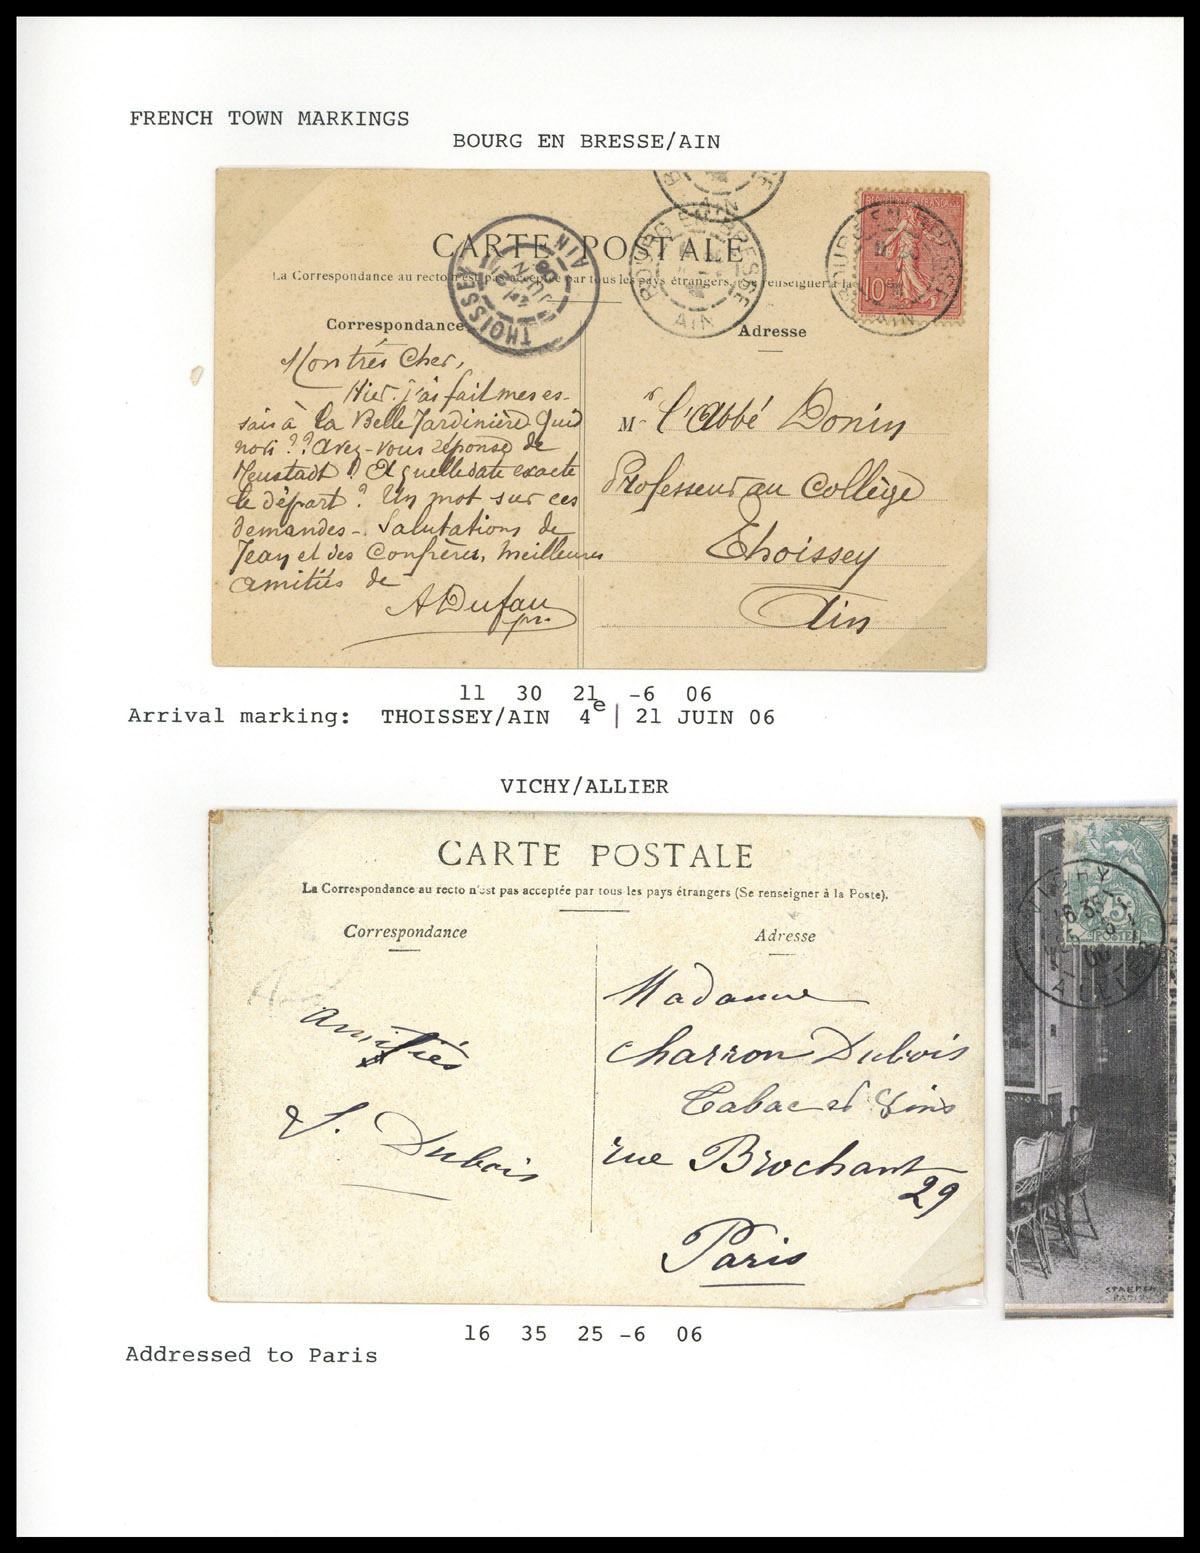 FRENCH TOWN MARKINGS
BOURG EN BRESSE/AIN
CARTE POSTALE
La Correspondance au recto n'est pas acceptée par tous les pays étrangers, Se renseigner à la
THOISSEY AIN
4E 21 JUIN 06
BOURG EN BRESSE
AIN
BOURG EN BRESSE
AIN
10
Correspondance
Adresse
Mon très Cher,
Hier j'ai fait mes es-
sais à la Belle Jardinière. Quid
novi?? Avez-vous réponse de
Neustadt? Et quelle date exacte
le départ? Un mot sur ces
demandes-. Salutations de
Jean et des Confrères, meilleures
amitiés de
A Dufau
pr.
Mr l'Abbé Donin
Professeur au Collège
Thoissey
Ain
11 30 21 -6 06
Arrival marking: THOISSEY/AIN 4e | 21 JUIN 06
VICHY/ALLIER
CARTE POSTALE
La Correspondance au recto n'est pas acceptée par tous les pays étrangers (Se renseigner à la Poste).
Correspondance
Adresse
Amitiés
S. Dubois
Madame
Charron Dubois
Tabac et Vins
rue Brochant
29
Paris
VICHY
16 35
25 -6
06
ALLIER
5
POSTES
PARIS
16 35 25 -6 06
Addressed to Paris